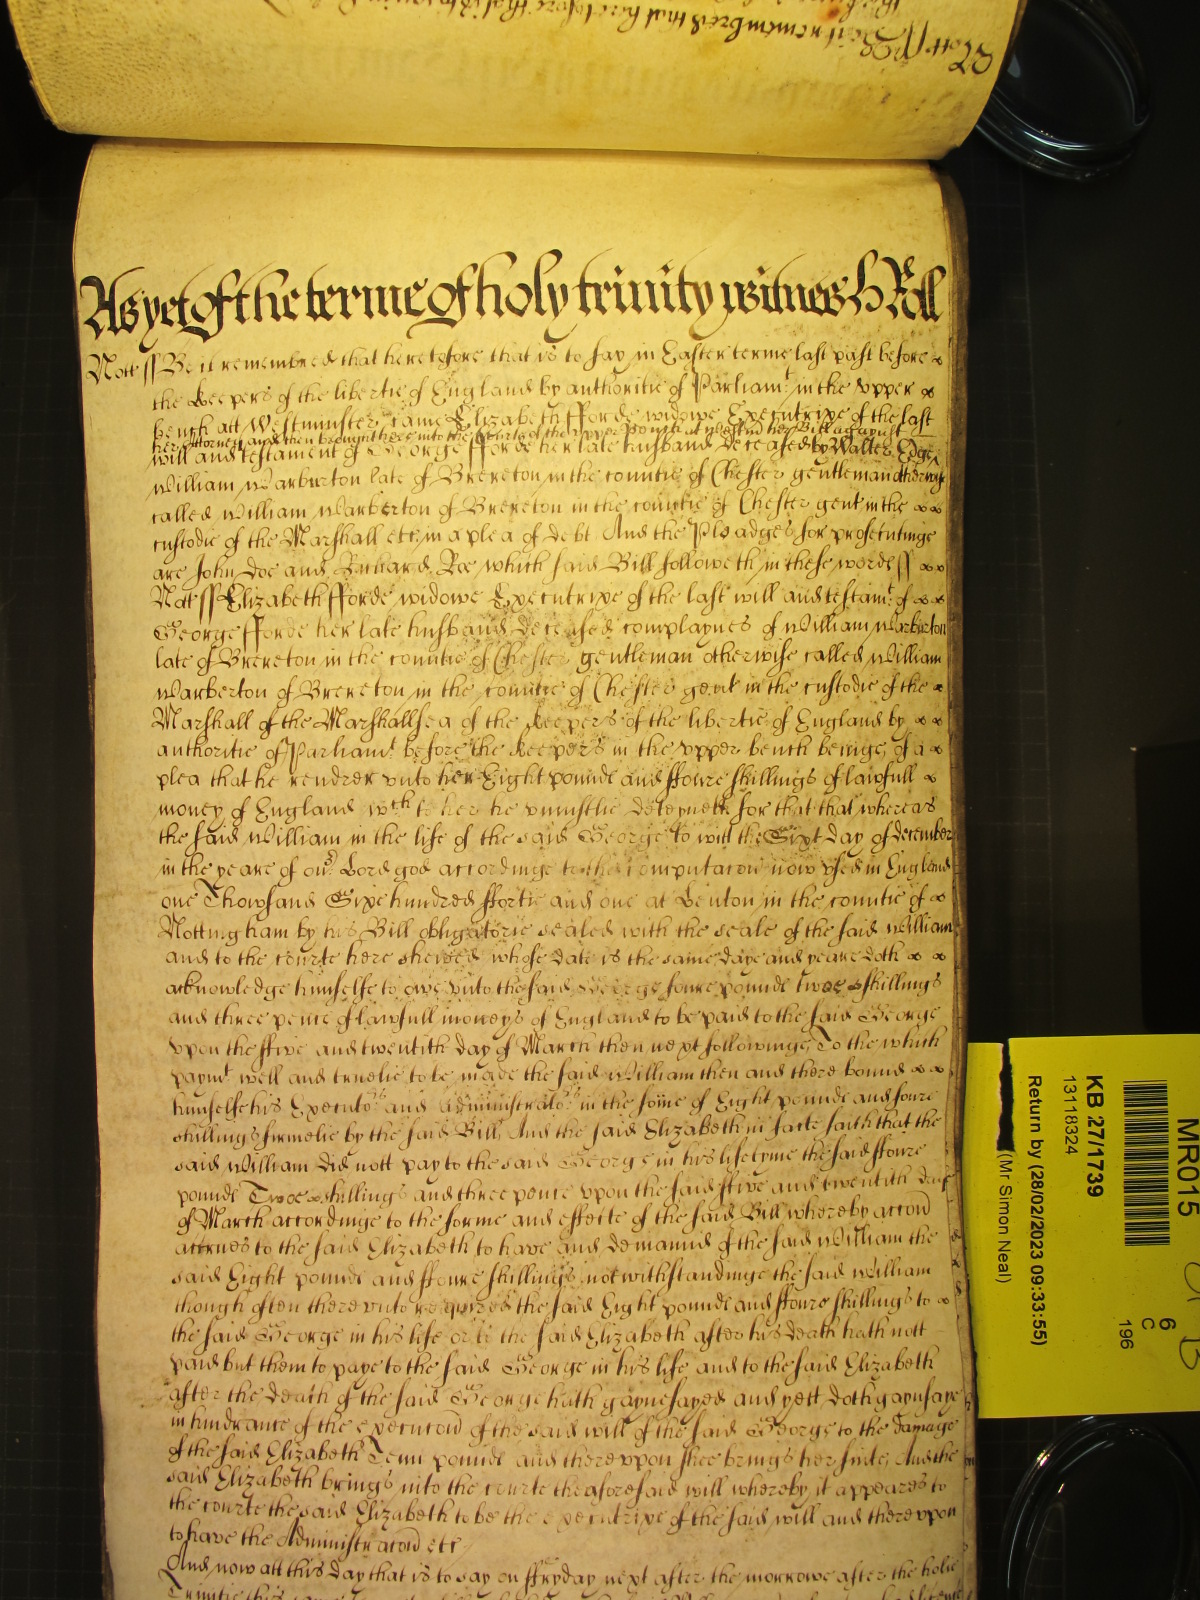 Nott ss Be it remembred that heretofore that is to say in
As yet of the terme of holy trinity witnes H Roll
Nott ss Be it remembred that heretofore that is to say in Easter terme last past before
the keepers of the libertie of England by authoritie of Parliamt in the vpper
bench att Westminster came Elizabeth fforde widowe Executrixe of the last
her Attorney and then brought here into the Courte of the vpper Bench at present her Bill against
will and testament of George fforde her late husband deceased by Walter Edge
William Warburton late of Brereton in the countie of Chester gentleman otherwise
called William Warberton of Brereton in the countie of Chester gent in the
custodie of the Marshall etc in a plea of debt And the Pleadges for prosecutinge
are John Doe and Richard Roe which said Bill followeth in these wordes ss
Nott ss Elizabeth fforde widowe Executrixe of the last will and testamt of
George fforde her late husband deceased complaynes of William Warburton
late of Brereton in the countie of Chester gentleman otherwise called William
Warberton of Brereton in the countie of Chester gent in the custodie of the
Marshall of the Marshallsea of the keepers of the libertie of England by
authoritie of Parliamt before the keepers in the vpper bench beinge of a
plea that he rendrer vnto her Eight pounds and ffoure shillings of lawfull
money of England wch to her he vniustlie deteyneth for that that whereas
the said William in the life of the said George to witt the Sixt day of december
in the yeare of our Lord god accordinge to the computacon now vsed in England
one Thowsand Sixe hundred ffortie and one at Lenton in the countie of
Nottingham by his Bill obligatorie sealed with the seale of the said William
and to the courte here shewed whose date is the same daye and yeare doth
acknowledge himselfe to owe vnto the said George foure pounds twoe shillings
and three pence of lawfull moneys of England to be paid to the said George
vpon the ffive and twentith day of March then next followinge To the which
paymt well and truelie to be made the said William then and there bound
himselfe his Executors and Administrators in the some of Eight pounds and foure
shillings firmelie by the said Bill And the said Elizabeth in facte saith that the
said William did nott pay to the said George in his lifetyme the said ffoure
pounds Twoe shillings and three pence vpon the said ffive and twentith daie
of March accordinge to the forme and effecte of the said Bill whereby accon
accrues to the said Elizabeth to have and demaund of the said William the
said Eight pounds and ffoure shillings notwithstandinge the said William
though often therevnto required the said Eight pounds and ffoure shillings to
the said George in his life or to the said Elizabeth after his death hath nott
paid but them to paye to the said George in his life and to the said Elizabeth
after the death of the said George hath gaynesayed and yett doth gaynsaye
in hindrance of the execucon of the said will of the said George to the damage
of the said Elizabeth Tenn pounds and therevpon shee brings her suite And the
said Elizabeth brings into the courte the aforesaid will whereby it appeares to
the courte the said Elizabeth to be the executrixe of the said will and therevpon
to have the Administracon etc
And now att this day that is to say on ffryday next after the morrowe after the holie
Trinitie this same
MR015
KB 27/1739
13118324
Return by (28/02/2023 09:33:55)
(Mr Simon Neal)
6
C
196